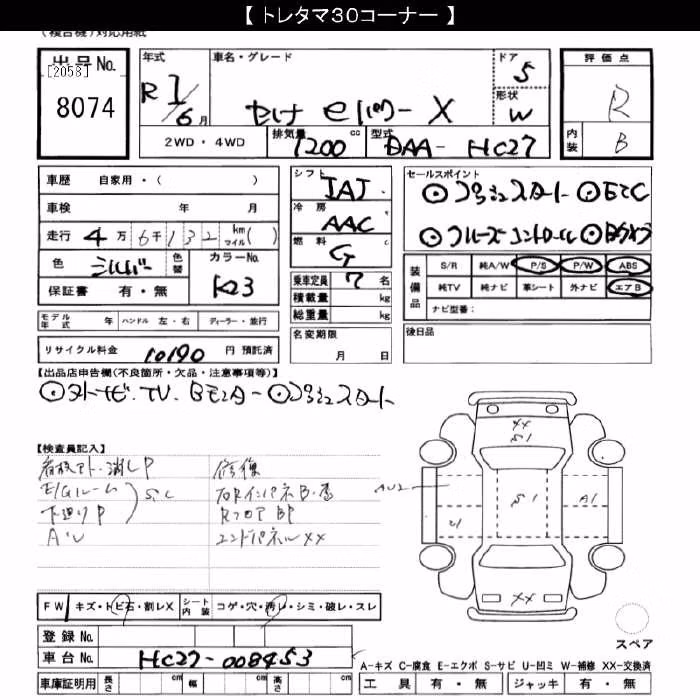 【 トレタマ30コーナー 】
(複合機)対応用紙
出品No.
[2058]
8074
年式
R 1/6 月
車名・グレード
セレナ eパワー X
ドア
5
形状
W
評価点
R
内装
B
2WD・4WD
排気量
1200 cc
型式
DAA- HC27
車歴 自家用・( )
車検 年 月
走行 4万 6千132 km マイル ( )
色 シルバー
色替
カラーNo.
K23
保証書 有・無
モデル年式 年 ハンドル 左・右 ディーラー・並行
リサイクル料金 10190 円 預託済
シフト
IAT
冷房
AAC
燃料
G
乗車定員 7 名
積載量 kg
総重量 kg
名変期限
月 日
セールスポイント
◎プッシュスタート ◎ETC
◎クルーズコントロール ◎Bカメラ
装備品
S/R 純A/W P/S P/W ABS
純TV 純ナビ 革シート 外ナビ エアB
ナビ型番:
後日品
【出品店申告欄(不良箇所・欠品・注意事項等)】
◎外ナビ.TV. Bモニター ◎プッシュスタート
【検査員記入】
看板アト・消しP
E/Gルーム
下廻りP
S.C
A・U
修復
右RインパネB・歪
Rフロア BP
エンドパネルXX
XX
S1
AU2
S1
A1
U1
XX
スペア
FW キズ・トビ石・割レX
シート内装 コゲ・穴・汚レ・シミ・破レ・スレ
登録No.
車台No. HC27-008453
車庫証明用 長さ cm 幅 cm 高さ cm
A-キズ C-腐食 E-エクボ S-サビ U-凹ミ W-補修 XX-交換済
工具 有・無 ジャッキ 有・無